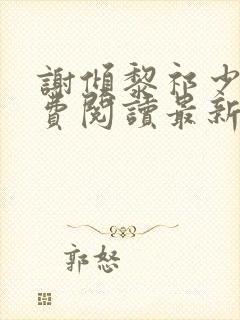 謝傾黎祁少
費閱讀最新
郭怒